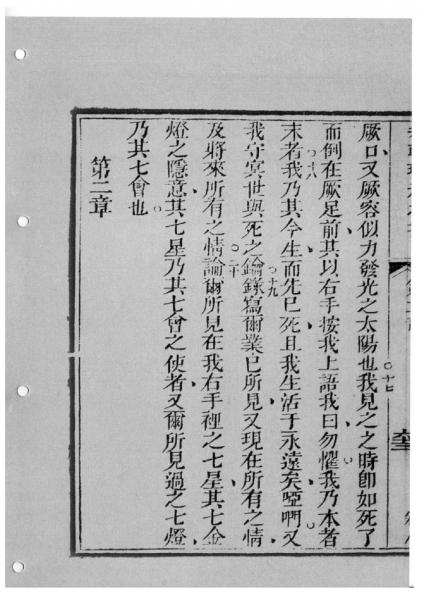 厥口又厥容似力發光之太陽也○十七我見之之時卽如死了
而倒在厥足前其以右手按我上語我曰勿懼我乃本者
末者○十八我乃其今生而先已死且我生活于永遠矣啞啊又
我守冥世與死之鑰○十九錄寫爾業已所見又現在所有之情
及將來所有之情○二十論爾所見在我右手裡之七星其七金
燈之隱意其七星乃其七會之使者又爾所見過之七燈
乃其七會也
第二章